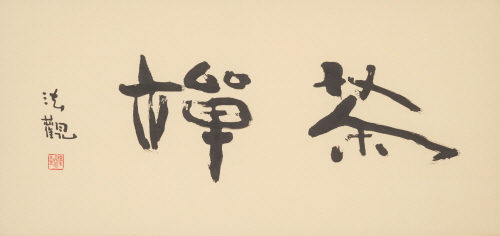 茶禪
法觀